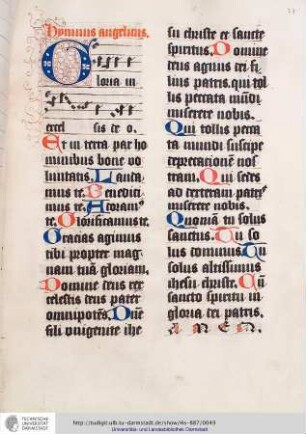 Hymnus angelicus.
Gloria in
excel sis de o.
Et in terra pax ho
minibus bone vo
luntatis. Lauda
mus te. Benedici
mus te. Adoram⁹
te. Glorificamus te.
Gracias agimus
tibi propter mag
nam tuā gloriam.
Domine deus rex
celestis deus pater
omnipotēs. Dn̄e
fili unigenite ihe
su christe et sancte
spiritus. Domine
deus agnus dei fi
lius patris. qui tol
lis peccata mūdi
miserere nobis.
Qui tollis pecca
ta mundi suscipe
deprecationem nos
tram. Qui sedes
ad dexteram patris
miserere nobis.
Quoniā tu solus
sanctus. Tu so
lus dominus. Tu
solus altissimus
ihesu christe. Cū
sancto spiritu in
gloria dei patris.
AMEN.
TECHNISCHE
UNIVERSITÄT
DARMSTADT
http://tudigit.ulb.tu-darmstadt.de/show/Hs-887/0049
Universitäts- und Landesbibliothek Darmstadt